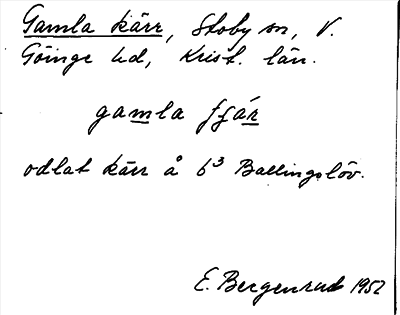 Gamla kärr, Stoby sn, V.
Göinge hd, Krist. län.
gamla fjär
odlat kärr å 6³ Ballingslöv.
E. Bergenrud 1952